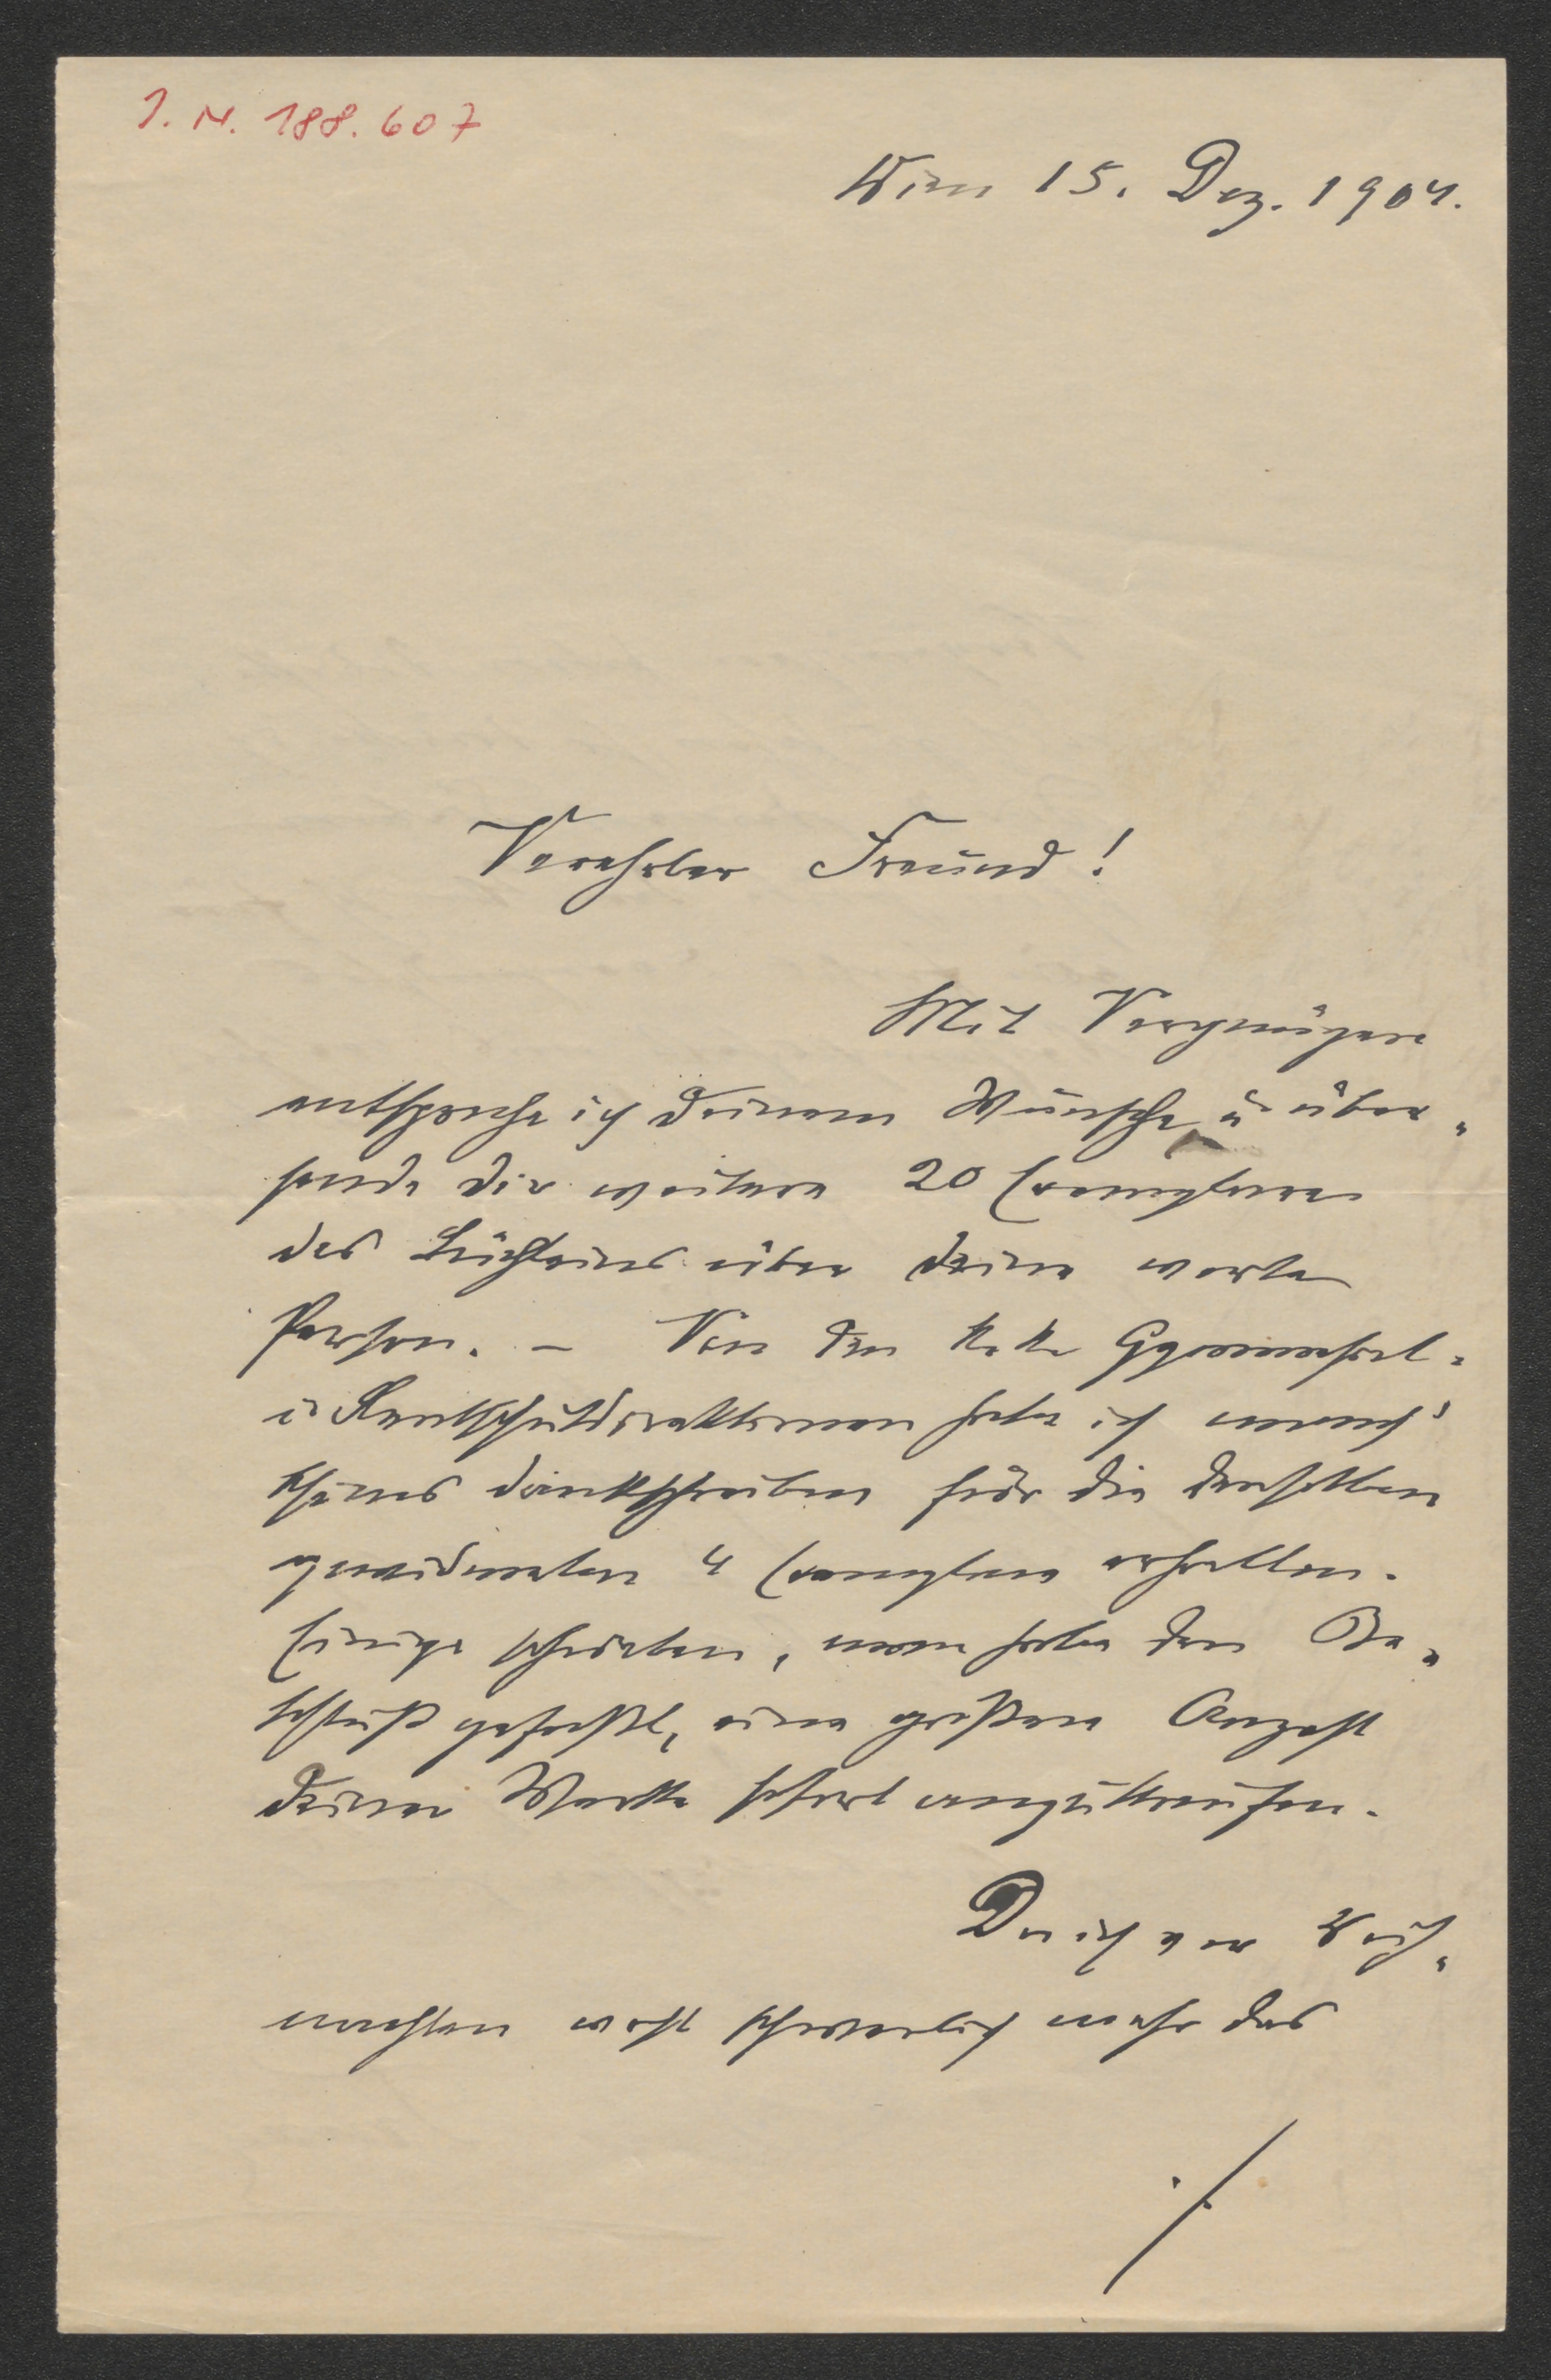 I. N. 188.607
Wien 15. Dez. 1904.
Verehrter Freund!
Mit Vergnügen
entspreche ich deinem Wunsche u. über-
sende dir weitere 20 Exemplare
des Büchleins über deine werte
Person. – Von den k. k. Gymnasial-
u. Realschuldirektionen habe ich
Dankschreiben für die denselben
gewidmeten 4 Exemplare erhalten.
Einige schrieben, man habe den Be-
schluß gefaßt, eine größere Anzahl
deiner Werke sofort anzukaufen.
Da ich vor Weih-
nachten wohl schwerlich mehr das
./.